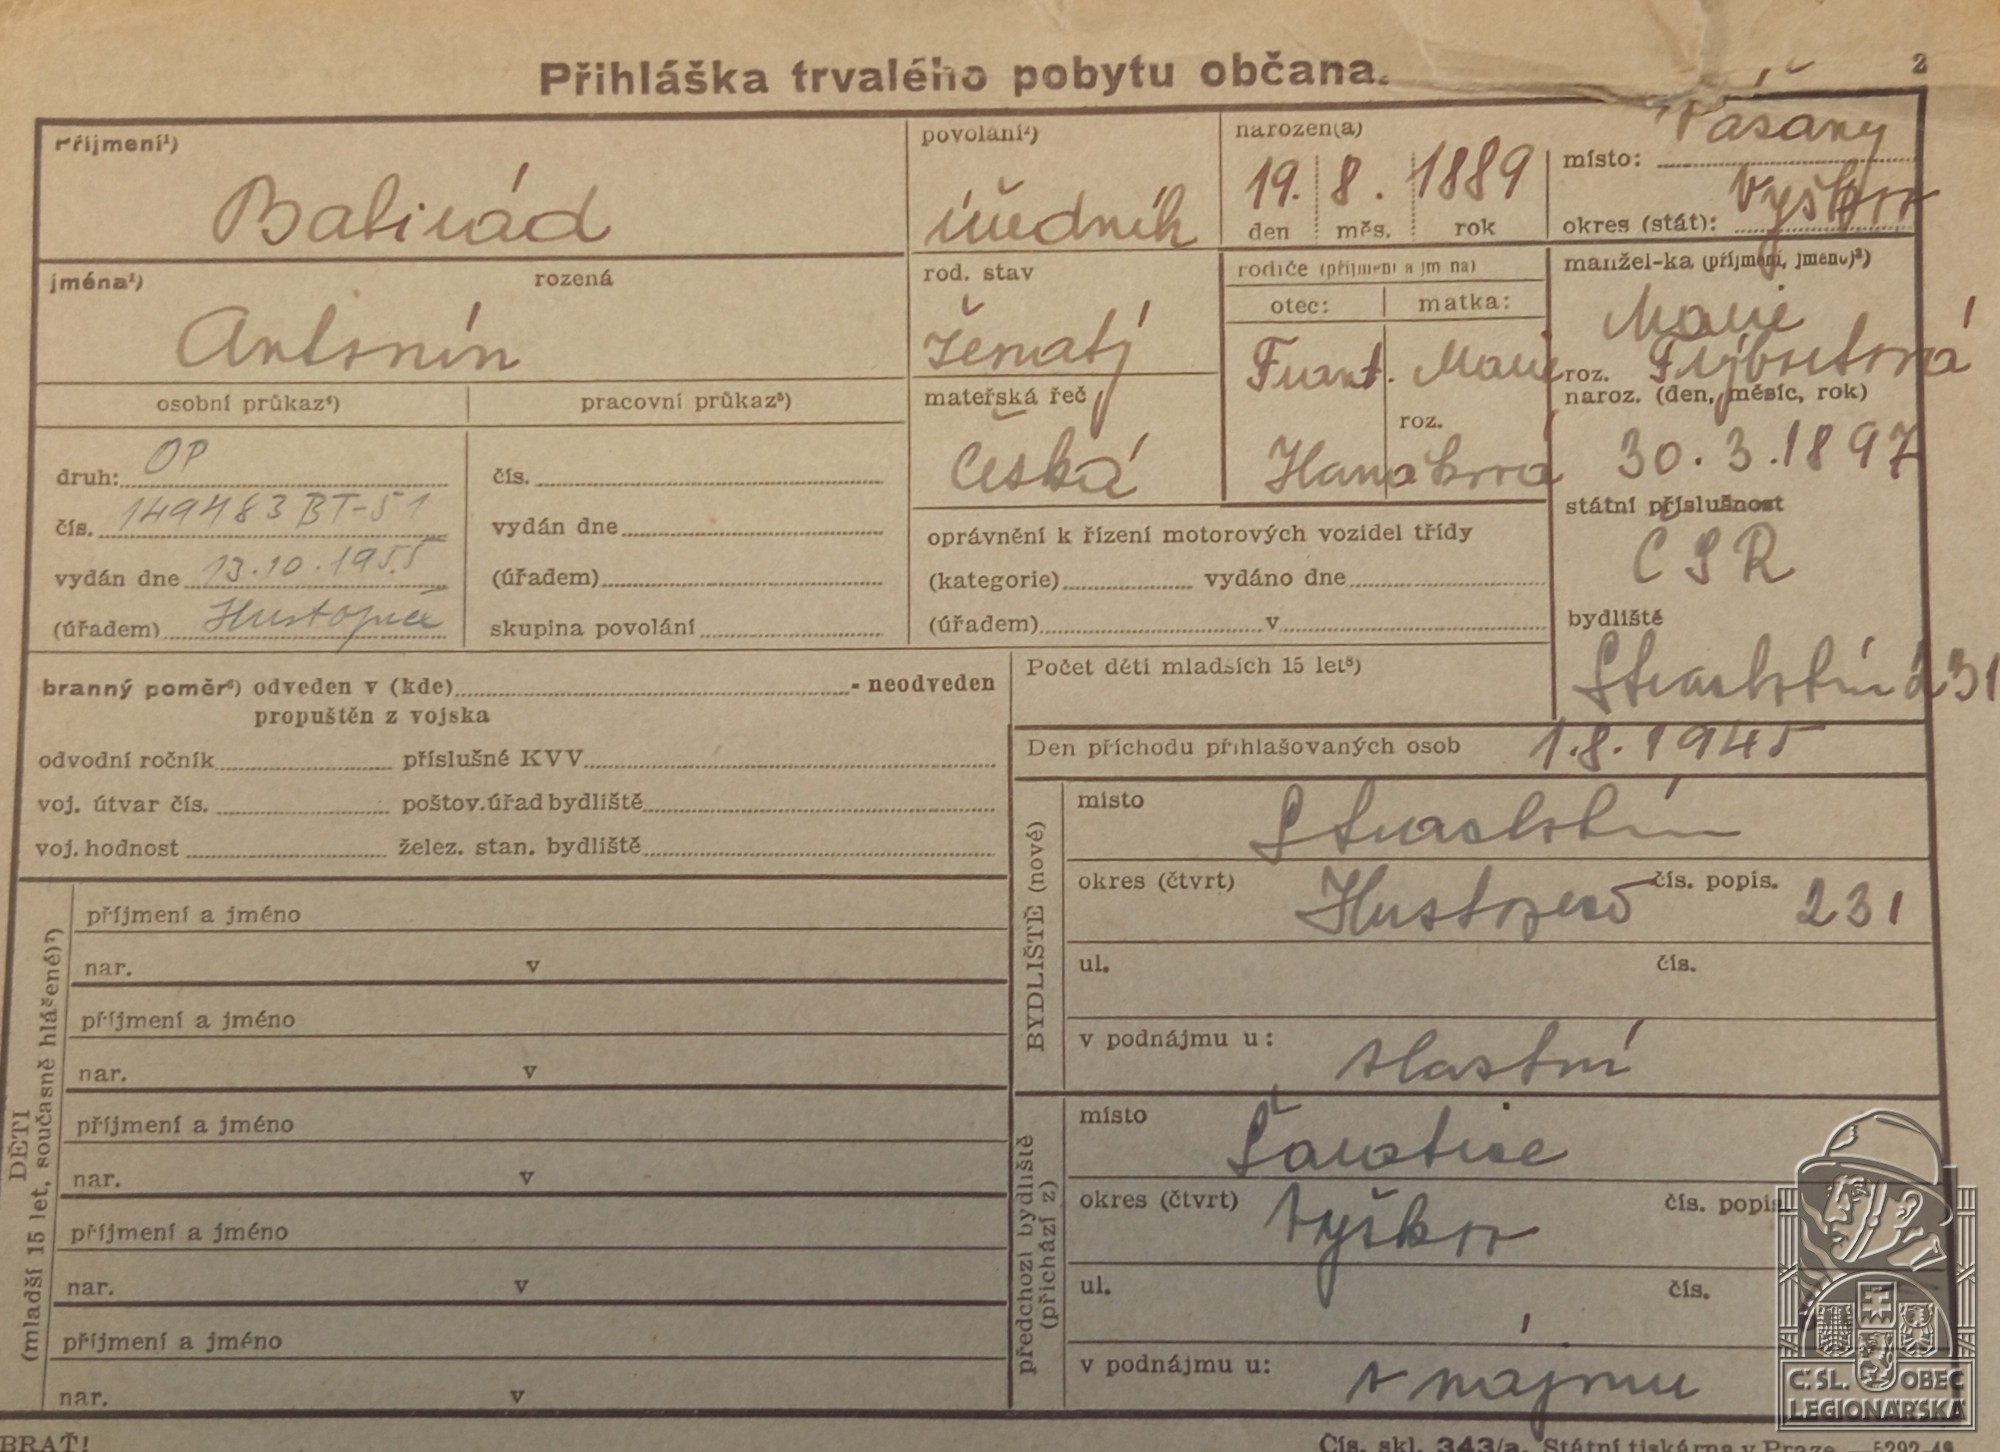 Přihláška trvalého pobytu občana.
2
Příjmení¹)
Babirád
povolání²)
úředník
narozen(a)
19. 8. 1889
den měs. rok
místo: Vážany
okres (stát): Vyškov
jména¹) rozená
Antonín
rod. stav
ženatý
rodiče (příjmení a jména)
otec: matka:
Frant. Marie
roz.
Hanákova
manžel-ka (příjmení, jméno)³)
Marie
roz.
naroz. (den, měsíc, rok)
30. 3. 1897
osobní průkaz⁴) pracovní průkaz⁵)
mateřská řeč
Česká
druh: OP
čís. 149483 BT-51
vydán dne 13.10.1955
(úřadem) Hustopeče
čís.
vydán dne
(úřadem)
skupina povolání
oprávnění k řízení motorových vozidel třídy
(kategorie) vydáno dne
(úřadem) v
státní příslušnost
ČSR
bydliště
Strachotín 231
branný poměr⁶) odveden v (kde) - neodveden
propuštěn z vojska
odvodní ročník příslušné KVV
voj. útvar čís. poštov. úřad bydliště
voj. hodnost želez. stan. bydliště
Počet dětí mladších 15 let⁸)
Den příchodu přihlašovaných osob 1.8.1945
BYDLIŠTĚ (nové)
místo Strachotín
okres (čtvrt) Hustopeče čís. popis. 231
ul. čís.
v podnájmu u: vlastní
předchozí bydliště
(přichází z)
místo Šaratice
okres (čtvrt) Vyškov čís. popis.
ul. čís.
v podnájmu u: v nájmu
DĚTI
(mladší 15 let, současně hlášené)⁷)
příjmení a jméno
nar. v
příjmení a jméno
nar. v
příjmení a jméno
nar. v
příjmení a jméno
nar. v
příjmení a jméno
nar. v
BRAŤ!
Čís. skl. 343/a. Státní tiskárna v Praze. —5292-49
Č. SL. OBEC
LEGIONÁŘSKÁ